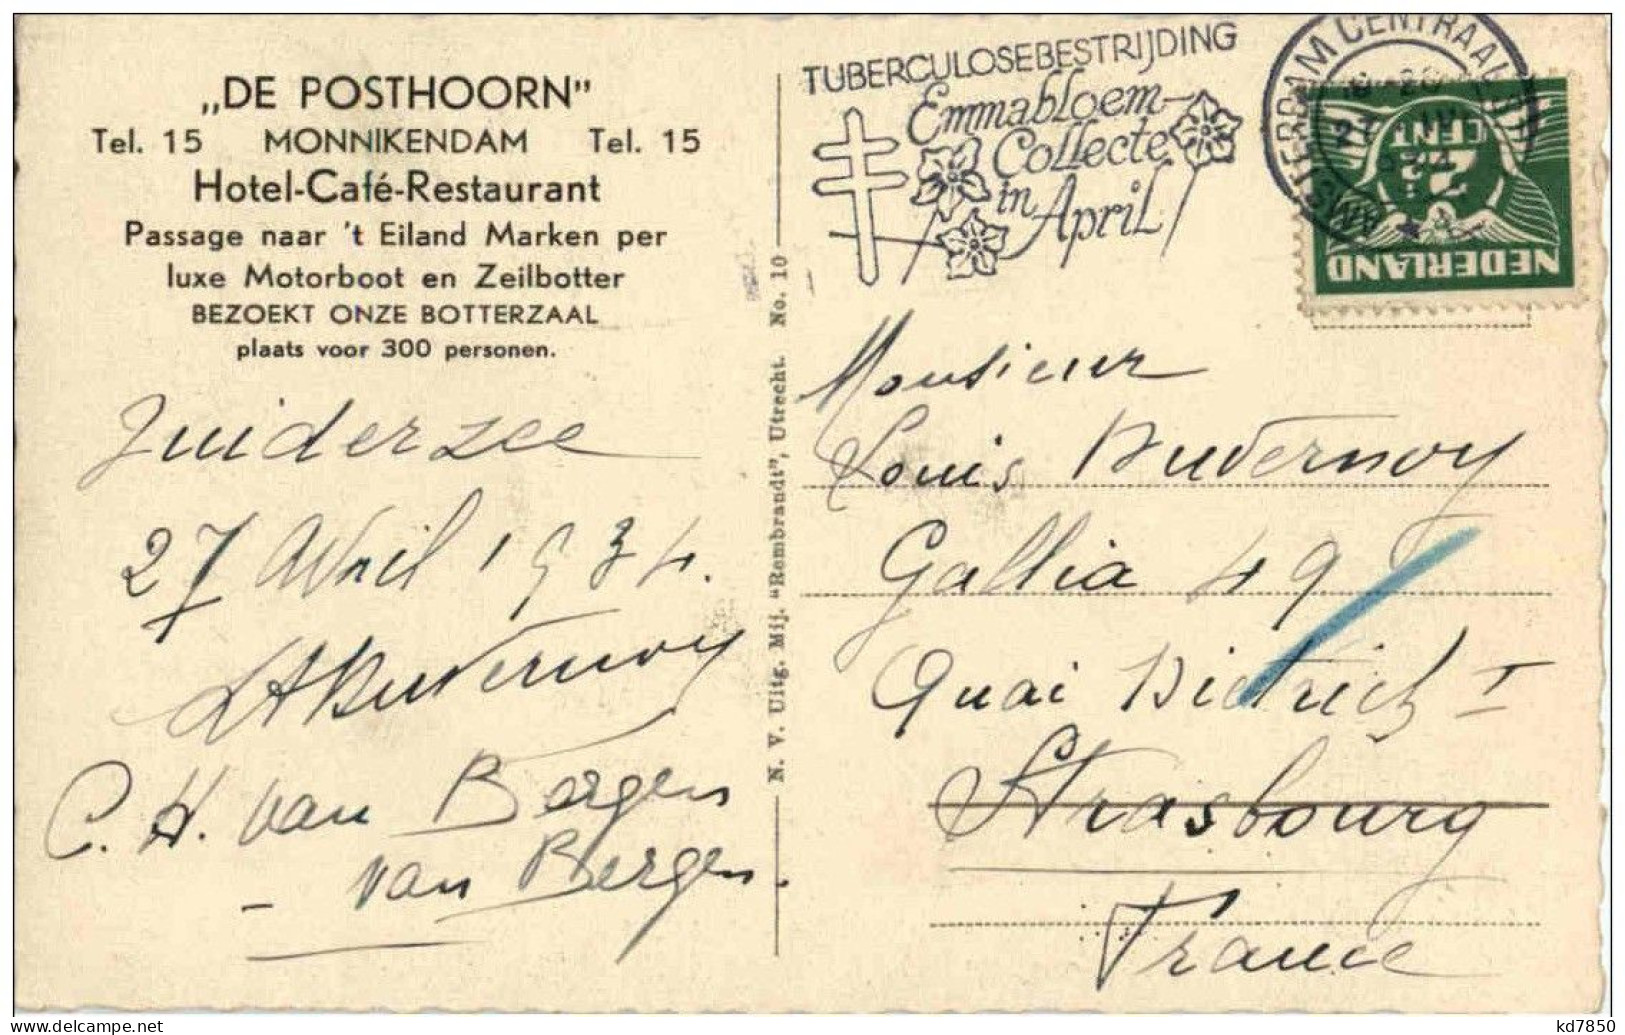 „DE POSTHOORN"
Tel. 15 MONNIKENDAM Tel. 15
Hotel-Café-Restaurant
Passage naar 't Eiland Marken per
luxe Motorboot en Zeilbotter
BEZOEKT ONZE BOTTERZAAL
plaats voor 300 personen.
Zuiderzee
27 Avril 1934.
Duvernoy
C. H. van Bergen
- van Bergen.
N. V. Uitg. Mij. "Rembrandt", Utrecht. No. 10
TUBERCULOSEBESTRIJDING
Emmabloem-
Collecte
in April
AMSTERDAM CENTRAAL
NEDERLAND
2½
CENT
Monsieur
Louis Duvernoy
Gallia 49
Quai Dietrich
Strasbourg
France
kd7850